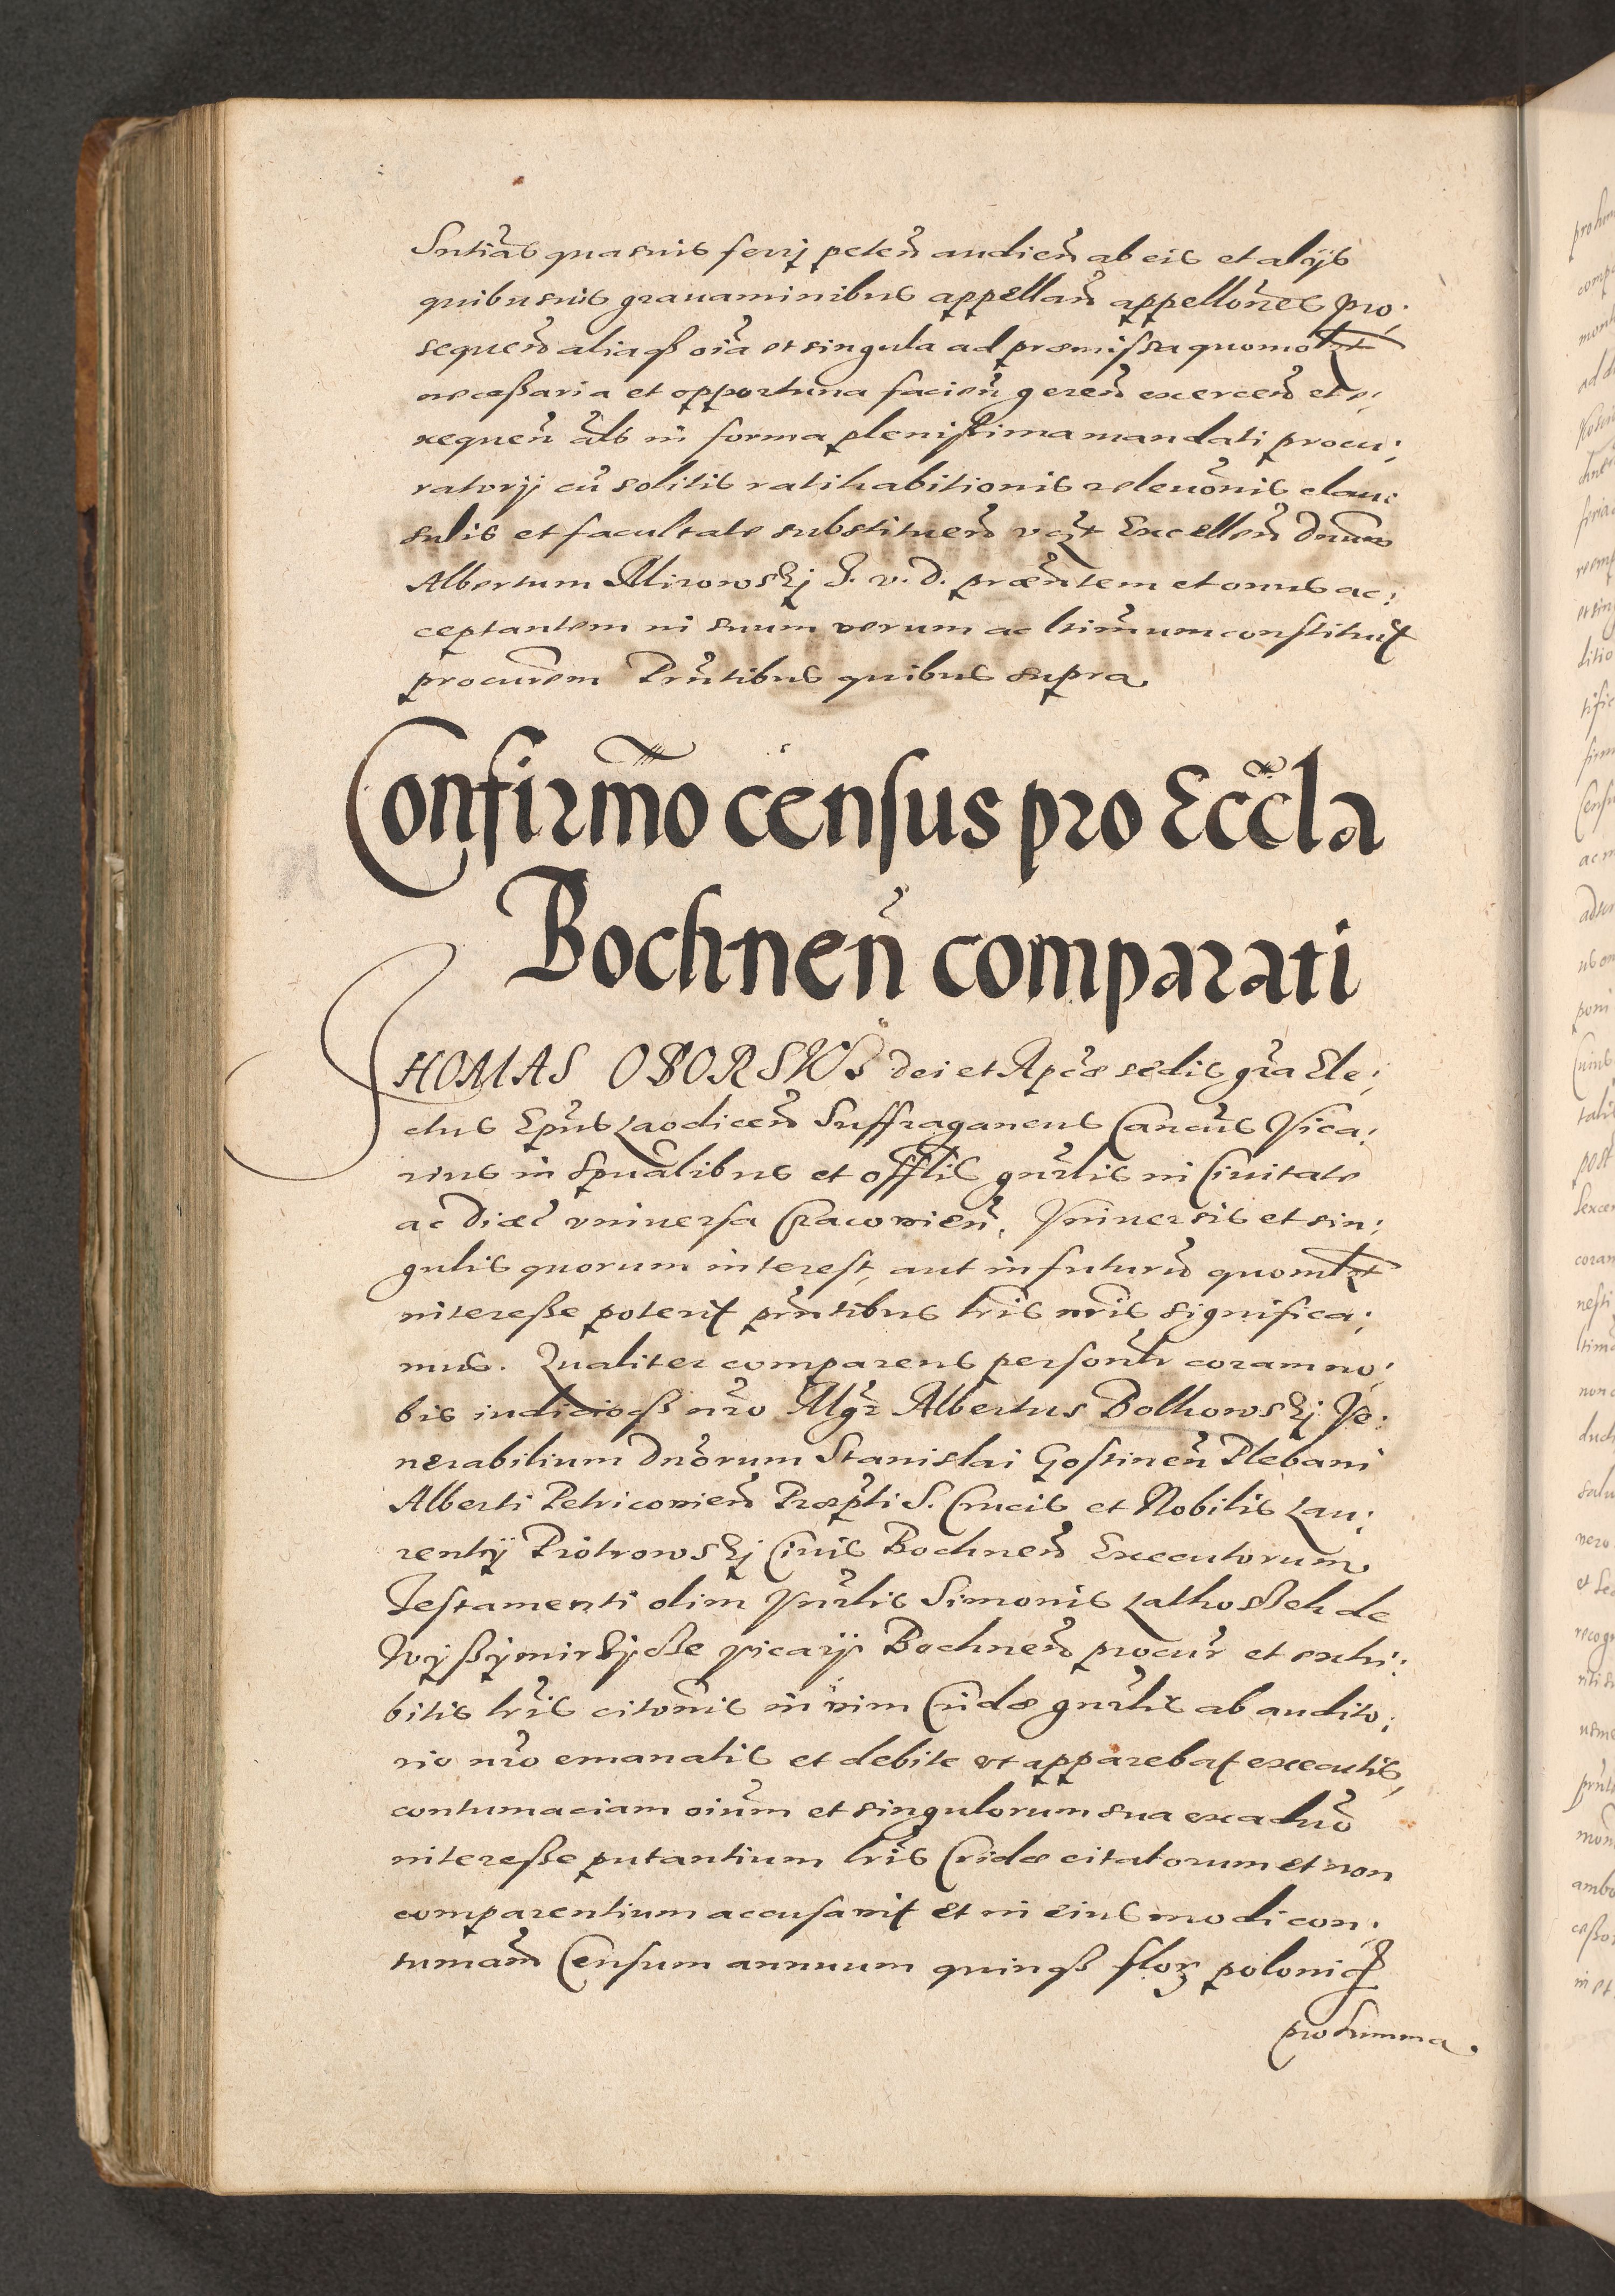 Sntiãs quasuis ferrj peteñ audieñ ab eis et alijs
quibusuis grauaminibus appellañ appellões pro:
sequeñ aliaqß oĩa et singula ad præmissa quomolt
necessaria et opportuna facieñ gereñ exerceñ et e:
xequeñ als in forma plenissima mandati procu:
ratorij cũ solitis ratihabitionis releuõnis clau:
sulis et facultate substitueñ Excelleñ Dnum
Albertum Mirowskj J. V. D. præntem et onus ac:
ceptantem in suum verum ac ltimum constituit
procurem Pñtibus quibus supra
Confirmõ census pro Eccla
Bochneñ comparati
THOMAS OBORSKI dei et Apcæ sedis gra Ele:
ctus Epus Laodiceñ Suffraganeus Cancus Vica:
rius in Spualibus et offlis gnrlis in Ciuitate
ac Diæc vniuersa Cracouieñ, Vniuersis et sin:
gulis quorum interest, aut in futurũ quomlt
interesse poterit pñtibus lris nris significa:
mus. Qualiter comparens personlr coram no:
bis iudicioqß nro Mgr Albertus Bolkowskj Ve:
nerabilium Dnorum Stanislai Gostineñ Plebani
Alberti Petricouieñ Præpti S. Crucis et Nobilis Lau:
rentij Piotrowskj Ciuis Bochneñ Executorum
Testamenti olim Vnrlis Simonis Lathosßek de
vicarij Bochneñ procur et exhi:
bitis lris citonis in vim Cridæ gnrlis ab audito:
rio nro emanatis et debite vt apparebat executis,
contumaciam oium et singulorum sua ex aduõ
interesse putantium lris Cridæ citatorum et non
comparentium accusauit et in eiusmodi con:
tumam Censum annuum quinqß flor polonic
pro summa